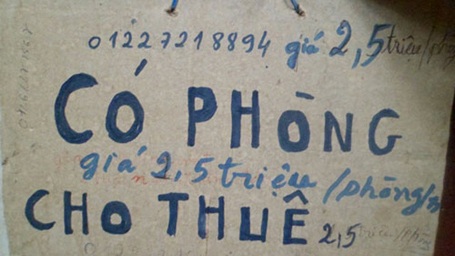 01227218894 giá 2,5 triệu/phòn
CÓ PHÒNG
giá 2,5 triệu/phòng/
CHO THUÊ 2,5